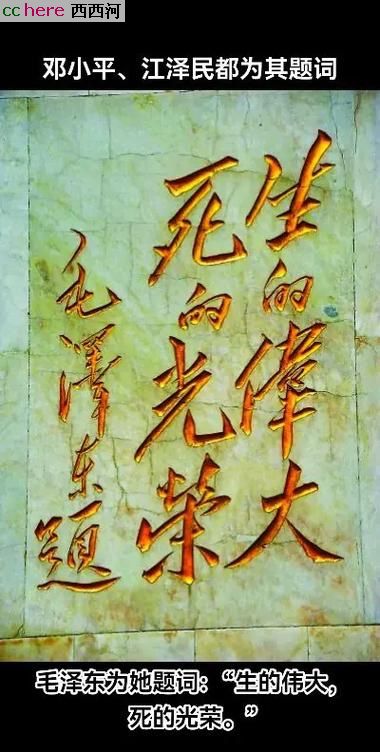 cchere 西西河
邓小平、江泽民都为其题词
生的偉大
死的光榮
毛澤东題
毛泽东为她题词：“生的伟大，
死的光荣。”